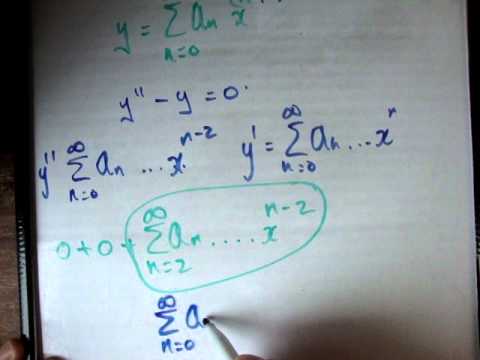 y = ∞∑n=0 an x
y'' - y = 0.
y'' ∞∑n=0 an ... x^n-2 y' = ∞∑n=0 an ... x^n
0 + 0 + ∞∑n=2 an .... x^n-2
∞∑n=0 a